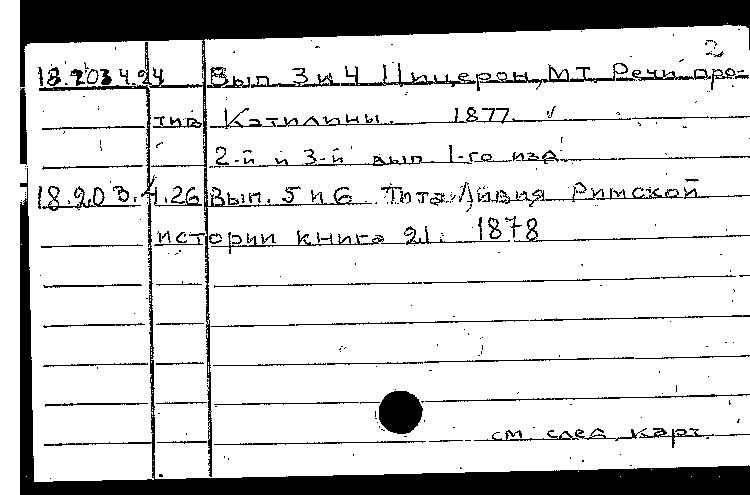 2
18.203.4.24 Вып. 3 и 4 Цицерон, М.Т. Речи про-
тив Катилины. 1877.
2-й и 3-й вып. 1-го изд.
18.203.4.26 Вып. 5 и 6 Тита Ливия Римской
истории книга 21. 1878
см. след. карт.